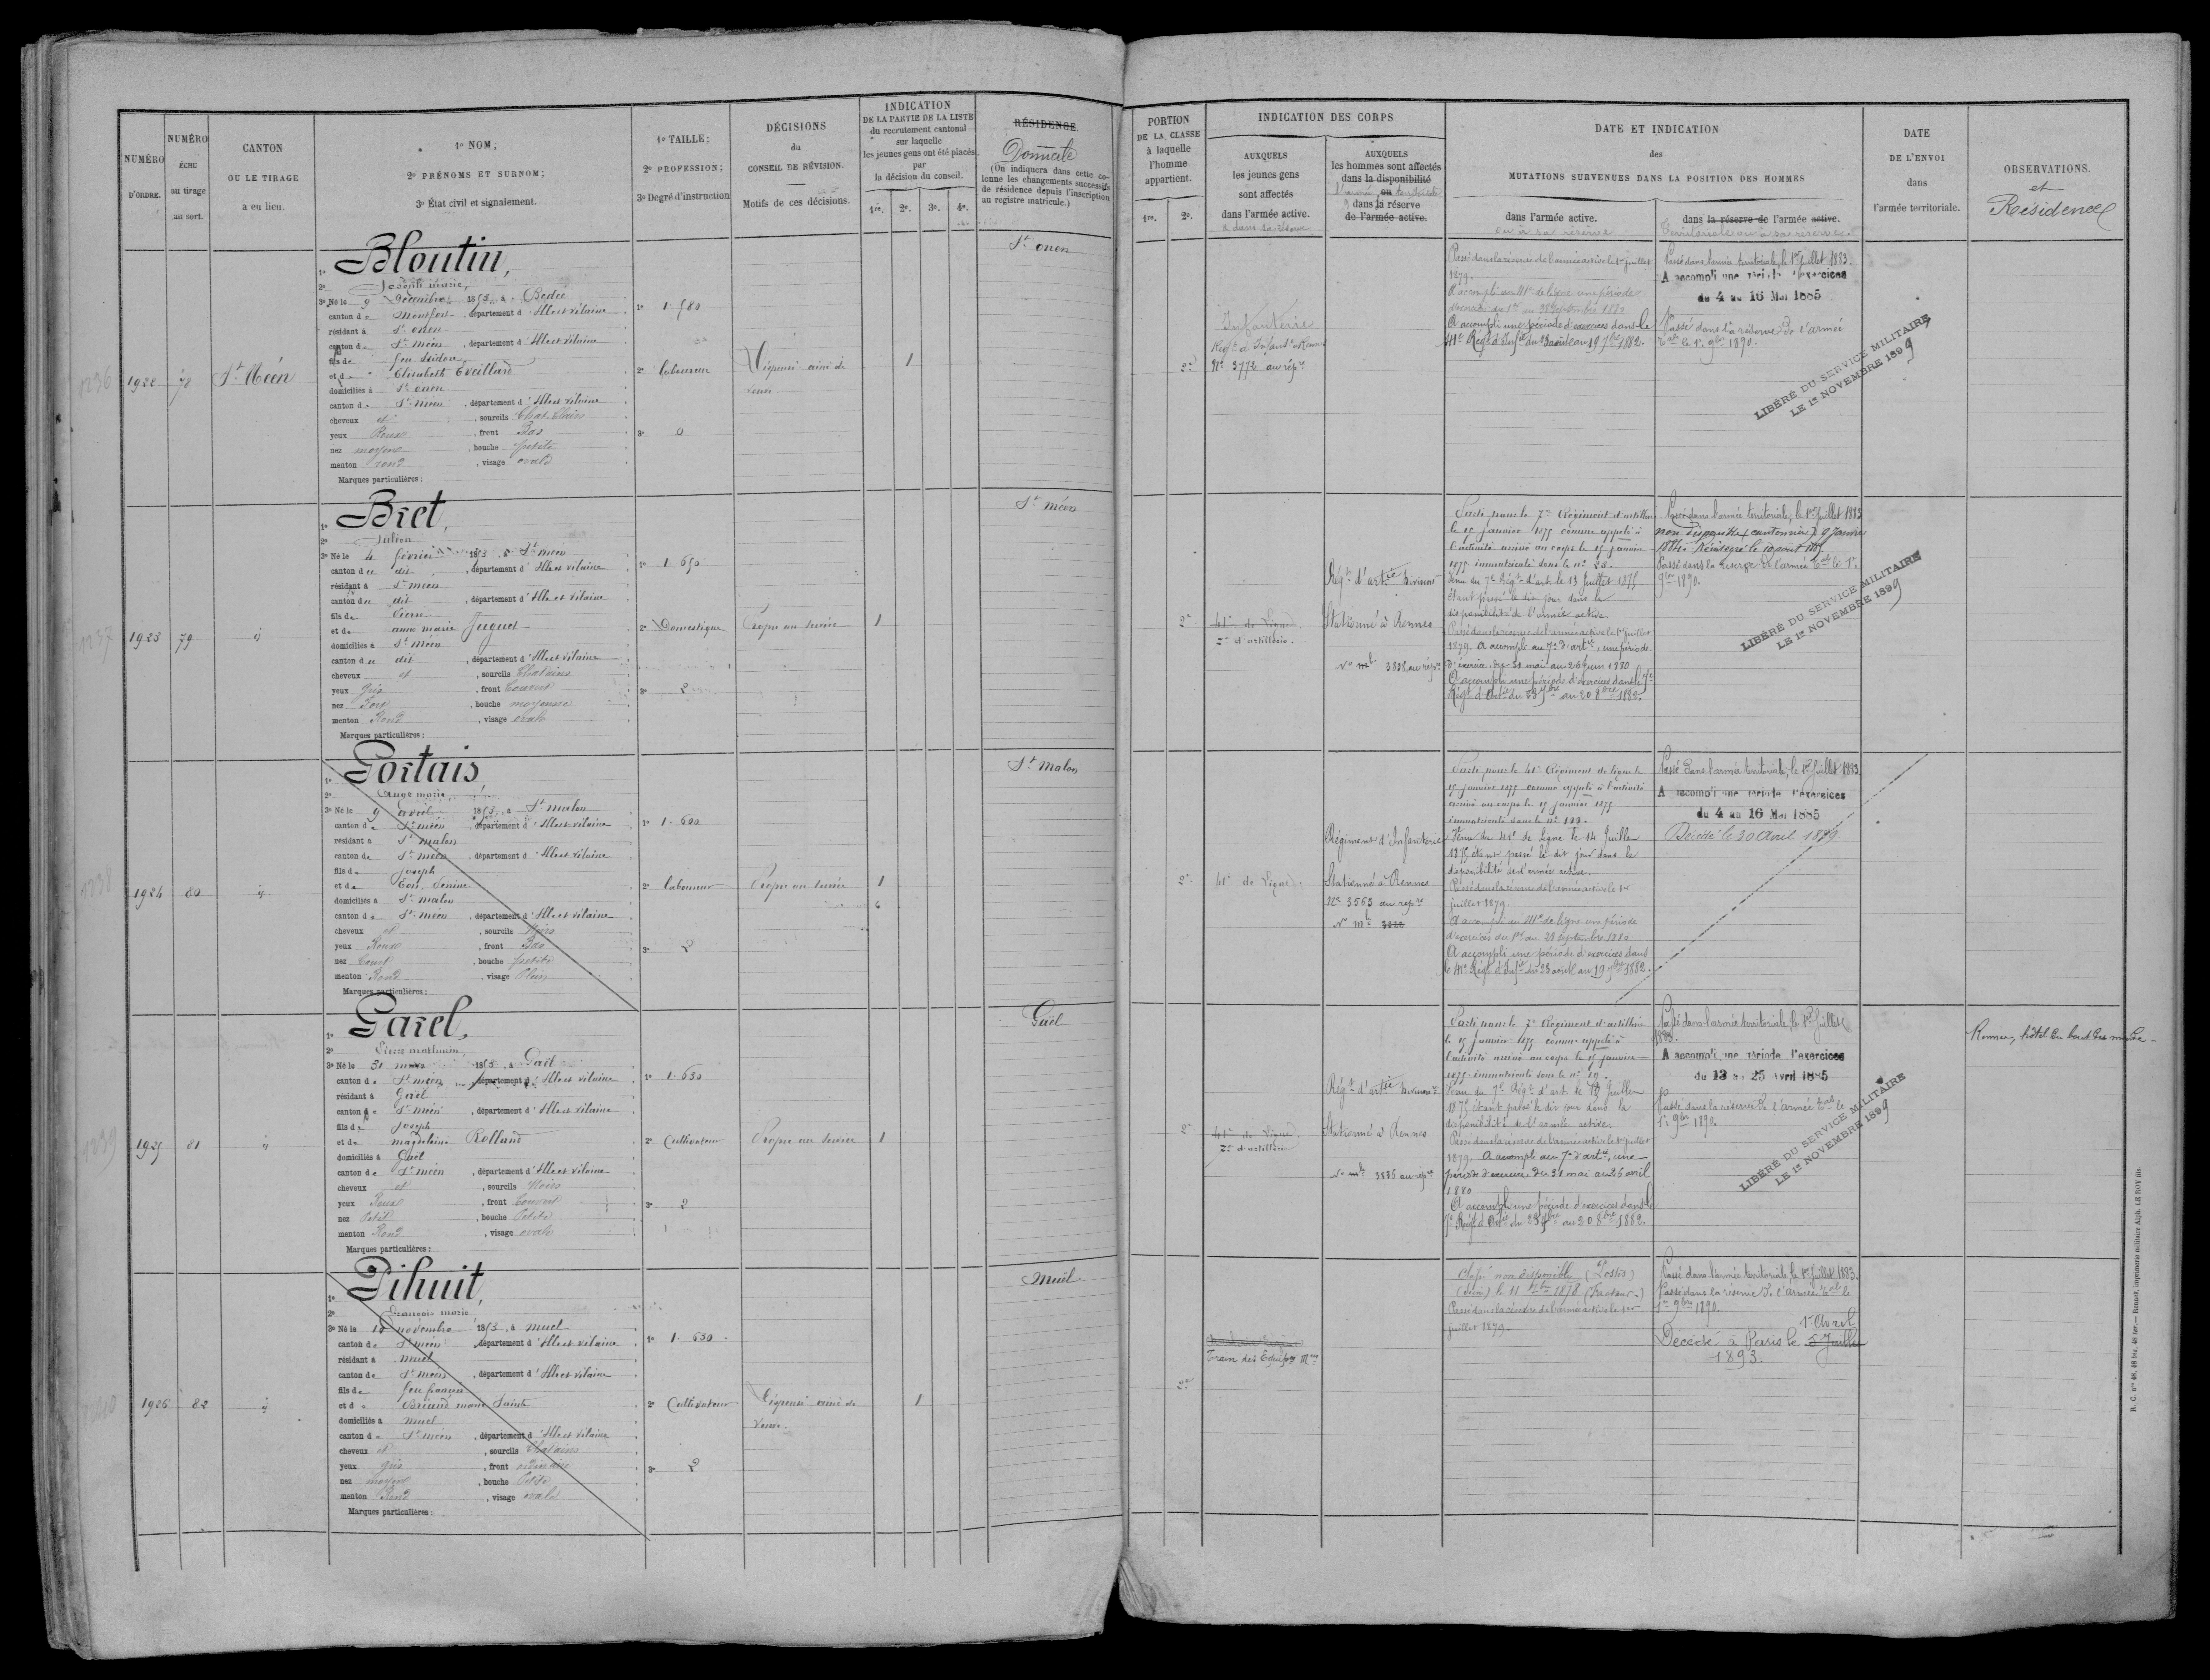 NUMÉRO
D'ORDRE.
NUMÉRO
ÉCHU
au tirage
au sort.
CANTON
OU LE TIRAGE
a eu lieu.
1º NOM;
2º PRÉNOMS ET SURNOM;
3º État civil et signalement.
1º TAILLE;
2º PROFESSION;
3º Degré d'instruction
DÉCISIONS
du
CONSEIL DE RÉVISION.
Motifs de ces décisions.
INDICATION
DE LA PARTIE DE LA LISTE
du recrutement cantonal
sur laquelle
les jeunes gens ont été placés
par
la décision du conseil.
1re. 2e. 3e. 4e.
RÉSIDENCE.
Domicile
(On indiquera dans cette co-
lonne les changements successifs
de résidence depuis l'inscription
au registre matricule.)
PORTION
DE LA CLASSE
à laquelle
l'homme
appartient.
1re. 2e.
INDICATION DES CORPS
AUXQUELS
les jeunes gens
sont affectés
dans l'armée active.
& dans sa réserve
AUXQUELS
les hommes sont affectés
dans la disponibilité
ou
dans la réserve
de l'armée active.
DATE ET INDICATION
des
MUTATIONS SURVENUES DANS LA POSITION DES HOMMES
dans l'armée active.
ou à sa réserve
dans la réserve de l'armée active.
territoriale ou à sa réserve.
DATE
DE L'ENVOI
dans
l'armée territoriale.
OBSERVATIONS.
et
Résidence
1236
1922
78
St Méen
1º Bloutin,
2º Joseph marie,
3º Né le 9 Décembre 1853, à Bedée
canton de Montfort, département d'Ille et vilaine
résidant à St onen
canton de St méen, département d'Ille et vilaine
fils de feu Isidore
et de Elisabeth Eveillard
domiciliés à St onen
canton de St méen, département d'Ille et vilaine
cheveux et, sourcils Chat. Clairs
yeux Roux, front Bas
nez moyen, bouche petite
menton rond, visage ovale
Marques particulières:
1º 1.580
2º Laboureur
3º 0
Dispensé ainé de
veuve
1
St onen
2e
Infanterie
Regt d'Infant. Rennes
Nº 3772 au répre
Passé dans la réserve de l'armée active le 1er juillet
1879.
A accompli au 41e de ligne une période
d'exercices du 1er au 28 Septembre 1880
A accompli une période d'exercices dans le
41e Régt d'Infie du 23 août au 19 7bre 1882.
Passé dans l'armée territoriale, le 1er Juillet 1883.
A accompli une période d'exercices
du 4 au 16 Mai 1885
Passé dans la réserve de l'armée
tale le 1er 9bre 1890.
LIBÉRÉ DU SERVICE MILITAIRE
LE 1er NOVEMBRE 1899
1237
1923
79
id
1º Bret,
2º Julien
3º Né le 4 février 1853, à St méen
canton du dit, département d'Ille et vilaine
résidant à St méen
canton du dit, département d'Ille et vilaine
fils de Pierre
et de anne marie Juguet
domiciliés à St méen
canton du dit, département d'Ille et vilaine
cheveux et, sourcils Chatains
yeux Gris, front Couvert
nez Fort, bouche moyenne
menton Rond, visage ovale
Marques particulières:
1º 1.650
2º Domestique
3º 2
Propre au service
1
St méen
2e
41e de Ligne
7e d'artillerie.
Régt d'artie Divisionre
Stationné à Rennes
Nº mle 3838 au répre
Parti pour le 7e Régiment d'artillerie
le 15 janvier 1875 comme appelé à
l'activité arrivé au corps le 15 janvier
1875 immatriculé sous le nº 28.
Venu du 7e Régt d'art. le 13 Juillet 1875
étant passé le dit jour dans la
disponibilité de l'armée active
Passé dans la réserve de l'armée active le 1er juillet
1879. A accompli au 7e d'artie, une période
d'exercices du 31 mai au 26 juin 1880
A accompli une période d'exercices dans le 7e
Régt d'Artie du 23 7bre au 20 8bre 1882.
Passé dans l'armée territoriale, le 1er Juillet 1883
non disponible (cantonnier) 9 Janvier
1884. Réintégré le 10 août 1887.
Passé dans la réserve de l'armée tale le 1er
9bre 1890.
LIBÉRÉ DU SERVICE MILITAIRE
LE 1er NOVEMBRE 1899
1238
1924
80
id
1º Gortais
2º Ange marie,
3º Né le 9 avril 1853, à St malon
canton de St méen, département d'Ille et vilaine
résidant à St malon
canton de St méen, département d'Ille et vilaine
fils de Joseph
domiciliés à St malon
canton de St méen, département d'Ille et vilaine
cheveux et, sourcils Noirs
yeux Roux, front Bas
nez Court, bouche petite
menton Rond, visage Plein
Marques particulières:
1º 1.600
2º Laboureur
3º 2
Propre au service
1
St Malon
2e
41e de Ligne
Régiment d'Infanterie
Stationné à Rennes
Nº 3563 au repre
Nº mle
Parti pour le 41e Régiment de ligne le
15 janvier 1875 comme appelé à l'activité
arrivé au corps le 15 janvier 1875
immatriculé sous le nº 193.
Venu du 41e de Ligne le 14 Juillet
1875 étant passé le dit jour dans la
disponibilité de l'armée active.
Passé dans la réserve de l'armée active le 1er
juillet 1879.
A accompli au 41e de ligne une période
d'exercices du 1er au 28 septembre 1880
A accompli une période d'exercices dans
le 41e Régt d'Infie du 23 août au 19 7bre 1882.
Passé dans l'armée territoriale, le 1er Juillet 1883
A accompli une période d'exercices
du 4 au 16 Mai 1885
Décédé le 30 Avril 1889
1239
1925
81
id
1º Garel,
2º Pierre mathurin,
3º Né le 31 mars 1853, à Gaël
canton de St méen, département d'Ille et vilaine
résidant à Gaël
canton de St méen, département d'Ille et vilaine
fils de Joseph
et de magdeleine Rolland
domiciliés à Gaël
canton de St méen, département d'Ille et vilaine
cheveux et, sourcils Noirs
yeux Roux, front Couvert
nez Petit, bouche Petite
menton Rond, visage ovale
Marques particulières:
1º 1.630
2º Cultivateur
3º 2
Propre au service
1
Gaël
2e
41e de Ligne
7e d'artillerie
Régt d'artie Divisionre
Stationné à Rennes
Nº mle 3836 au répre
Parti pour le 7e Régiment d'artillerie
le 15 janvier 1875 comme appelé à
l'activité arrivé au corps le 15 janvier
1875 immatriculé sous le nº 19.
Venu du 7e Régt d'art. le 13 Juillet
1875 étant passé le dit jour dans la
disponibilité de l'armée active.
Passé dans la réserve de l'armée active le 1er juillet
1879. A accompli au 7e d'artie, une
période d'exercices du 31 mai au 26 avril
1880
A accompli une période d'exercices dans le
7e Régt d'Artie du 23 7bre au 20 8bre 1882.
Passé dans l'armée territoriale, le 1er Juillet
1883.
A accompli une période d'exercices
du 13 au 25 Avril 1885
Passé dans la réserve de l'armée tale le
1er 9bre 1890.
LIBÉRÉ DU SERVICE MILITAIRE
LE 1er NOVEMBRE 1899
Rennes, hôtel du bout du monde
1926
82
id
1º Pihuit,
2º François marie
3º Né le novembre 1853, à muel
canton de St méen, département d'Ille et vilaine
résidant à muel
canton de St méen, département d'Ille et vilaine
fils de feu françois
et de Briand marie Sainte
domiciliés à muel
canton de St méen, département d'Ille et vilaine
cheveux et, sourcils Chatains
yeux gris, front ordinaire
nez moyen, bouche Petite
menton Rond, visage ovale
Marques particulières:
1º 1.630
2º Cultivateur
3º 2
Dispensé ainé de
veuve.
1
Muel
2e
Train des Equipages Mres
Classé non disponible (Postes)
(Seine) le 11 1878 (Facteur)
Passé dans la réserve de l'armée active le 1er
juillet 1879.
Passé dans l'armée territoriale, le 1er Juillet 1883.
Passé dans la réserve de l'armée tale le
1er 9bre 1890.
1er Avril
Décédé à Paris le 5 Juillet
1893
R. C. nos 48, 48 bis, 48 ter. — Rennes, imprimerie militaire Alph. LE ROY fils